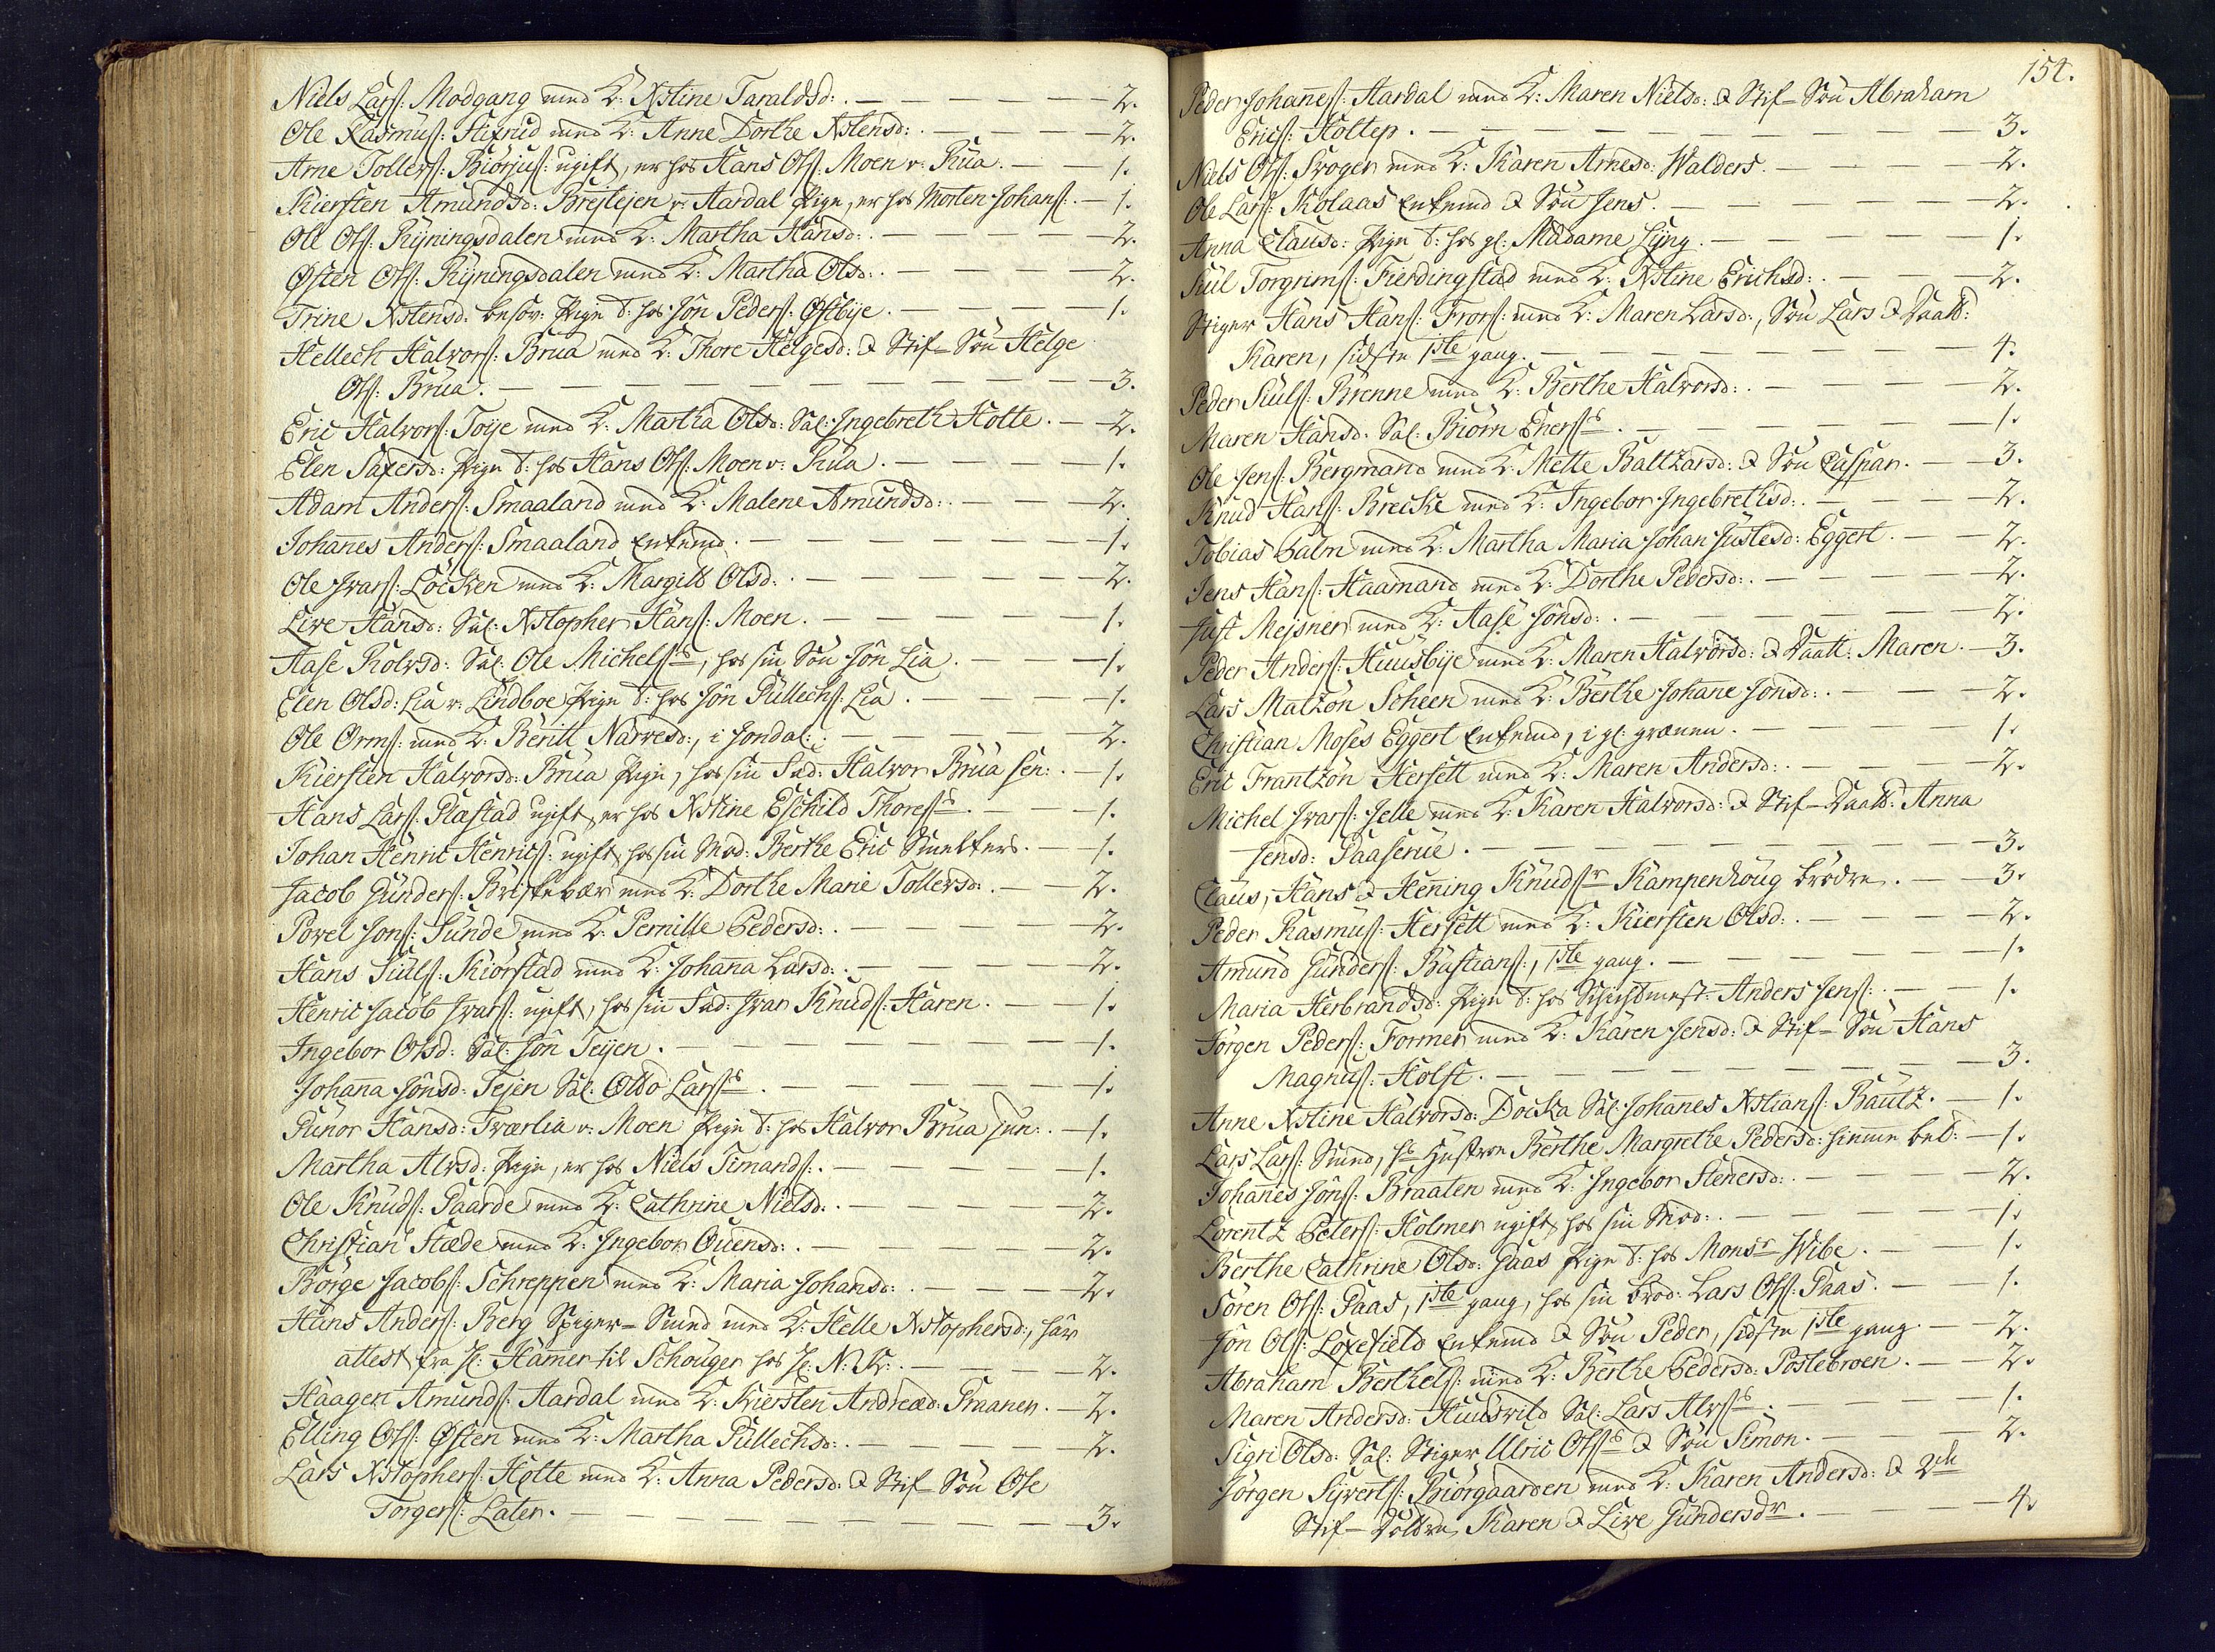 Niels Lars: Modgang med K: Xstine Taraldsd: . — 2.
Ole Rasmus: Stixrud med K: Anne Dorthe Xstensd: . — 2.
Arne Tollefs: Biørjus: ugift, er hos Hans Ols: Moen v: Rua. — 1.
Kiersten Amundsd: Brejlejen v: Aardal Pige, er hos Morten Johans: . — 1.
Ole Ols: Ryningsdalen med K: Martha Hansd: . — 2.
Østen Ols: Ryningsdalen med K: Martha Olsd: . — 2.
Trine Xstensd: besov: Pige t: hos Jon Peders: Østbye. — 1.
Hellech Halvors: Brua med K: Thore Helgesd: & Stif-Søn Helge
Ols: Brua. — 3.
Eric Halvors: Toije med K: Martha Olsd: Sal: Ingebreth Holte. — 2.
Elen Saxersd: Pige t: hos Hans Ols: Moen v: Rua. — 1.
Adam Anders: Smaaland med K: Malene Amundsd: . — 2.
Johanes Anders: Smaaland Enkemd. — 1.
Ole Ivars: Løcken med K: Margitt Olsd: . — 2.
Live Hansd: Sal: Xstopher Hans: Moen. — 1.
Aase Rolvsd: Sal: Ole Michels:s, hos sin Søn Jon Lia. — 1.
Elen Olsd: Lia v: Lindboe Pige t: hos Jon Gullechs: Lia. — 1.
Ole Orms: med K: Beritt Narvesd:, i Jondal: . — 2.
Kiersten Halvorsd: Brua Pige, hos sin Fad: Halvor Brua sen: . — 1.
Hans Lars: Plæstad ugift, er hos Xstine Eschild Thores:s. — 1.
Johan Henric Henrics: ugift, hos sin Mod: Berthe Eric Smelters. — 1.
Jacob Gunders: med K: Dorthe Marie Tollefsd: . — 2.
Povel Jons: Sunde med K: Pernille Pedersd: . — 2.
Hans Juls: Kiørstad med K: Johana Larsd: . — 2.
Henric Jacob Ivars: ugift, hos sin Fad: Ivar Knuds: Haren. — 1.
Ingebor Olsd: Sal: Jon Teijen. — 1.
Johana Jonsd: Tejen Sal: Otto Lars:s. — 1.
Gunor Hansd: Tværlia v: Moen Pige t: hos Halvor Brua jun: . — 1.
Martha Alvsd: Pige, er hos Niels Simands: . — 1.
Ole Knuds: Gaarde med K: Cathrine Nielsd: . — 2.
Christian Stæde med K: Ingebor Ouensd: . — 2.
Børge Jacobs: Schreppen med K: Maria Johansd: . — 2.
Hans Anders: Berg Spiger-Smed med K: Helle Xstophersd:, har
attest fra H: Hamer til Schouger hos H: N: K: . — 2.
Haagen Amunds: Aardal med K: Kiersten Andread: Praanen. — 2.
Elling Ols: Østen med K: Martha Gullechsd: . — 2.
Lars Xstophers: Holte med K: Anna Pedersd: & Stif-Søn Ole
Torgers: Later. — 3.
154.
Peder Johanes: Aardal med K: Maren Nielsd: & Stif-Søn Abraham
Erics: Holtep. — 3.
Niels Ols: Svoger med K: Karen Arnesd: Walders. — 2.
Ole Lars: Kolaas Enkemd & Søn Jens. — 2.
Anna Clausd: Pige t: hos gl: Madame Lyng. — 1.
Juul Torgrims: Fierdingstad med K: Xstine Erichsd: . — 2.
Stiger Hans Hans: Frors: med K: Maren Larsd:, Søn Lars & Daatt:
Karen, sidste 1ste gang. — 4.
Peder Juuls: Brenne med K: Berthe Halvorsd: . — 2.
Maren Hansd: Sal: Biørn Eners:s. — 1.
Ole Jens: Bergmand med K: Mette Baltzarsd: & Søn Caspar. — 3.
Knud Hans: Brecke med K: Ingebor Ingebrethsd: . — 2.
Tobias Palm med K: Martha Maria Johan Justesd: Eggert. — 2.
Jens Hans: Haamand med K: Dorthe Pedersd: . — 2.
Just Mejsner med K: Aase Jonsd: . — 2.
Peder Anders: Huusbye med K: Maren Halvorsd: & Daatt: Maren. — 3.
Lars Matzøn Scheen med K: Berthe Johane Jonsd: . — 2.
Christian Moses Eggert Enkemd, i gl: grænen. — 1.
Eric Frantzøn Hersett med K: Maren Andersd: . — 2.
Michel Ivars: Jelle med K: Karen Halvorsd: & Stif-Daatt: Anna
Jensd: Paaserue. — 3.
Claus, Hans & Hening Knuds:r Kampenhoug brødre. — 3.
Peder Rasmus: Hersett med K: Kiersten Olsd: . — 2.
Amund Gunders: Bastians:, 1ste gang. — 1.
Maria Herbrandsd: Pige t: hos Schichtmest: Anders Jens: . — 1.
Jørgen Peders: Former med K: Karen Jensd: & Stif-Søn Hans
Magnus: Holst. — 3.
Anne Xstine Halvorsd: Docka Sal: Johanes Xstians: Bautz. — 1.
Lars Lars: Smed, hs Hustroe Berthe Margrethe Pedersd: hieme bet: — 1.
Johanes Jons: Braaten med K: Ingebor Stenersd: . — 2.
Lorentz Peters: Holmer ugift, hos sin Mod: . — 1.
Berthe Cathrine Olsd: Gaas Pige t: hos Monsr Wibe. — 1.
Søren Ols: Paas, 1ste gang, hos sin brod: Lars Ols: Paas. — 1.
Jon Ols: Loxefield Enkemd & Søn Peder, sidste 1ste gang. — 2.
Abraham Berthels: med K: Berthe Pedersd: Postebroen. — 2.
Maren Andersd: Huusvild Sal: Lars Alvs:s. — 1.
Sigri Olsd: Sal: Stiger Ulric Ols:s & Søn Simon. — 2.
Jørgen Syverts: Biørgaarden med K: Karen Andersd: & 2de
Stif-Døttre, Karen & Live Gundersdr. — 4.